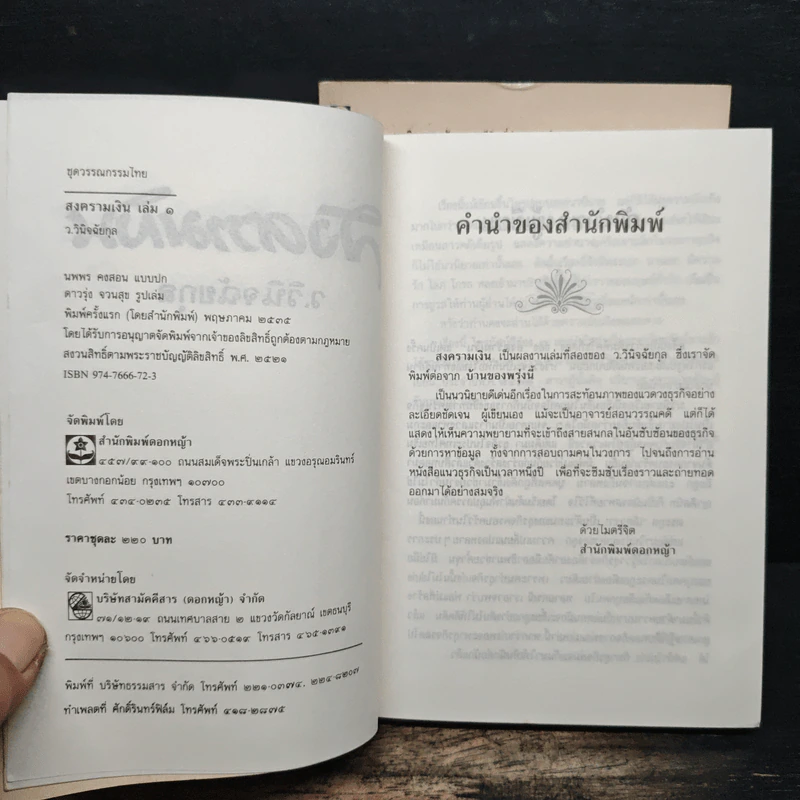 ชุดวรรณกรรมไทย
สงครามเงิน เล่ม ๑
ว.วินิจฉัยกุล
นพพร คงสอน แบบปก
ดาวรุ่ง จวนสุข รูปเล่ม
พิมพ์ครั้งแรก (โดยสำนักพิมพ์) พฤษภาคม ๒๕๓๕
โดยได้รับการอนุญาตจัดพิมพ์จากเจ้าของลิขสิทธิ์ถูกต้องตามกฎหมาย
สงวนสิทธิ์ตามพระราชบัญญัติลิขสิทธิ์ พ.ศ. ๒๕๒๑
ISBN 974-7666-72-3
จัดพิมพ์โดย
สำนักพิมพ์ดอกหญ้า
๔๕๗/๙๙-๑๐๐ ถนนสมเด็จพระปิ่นเกล้า แขวงอรุณอมรินทร์
เขตบางกอกน้อย กรุงเทพฯ ๑๐๗๐๐
โทรศัพท์ ๔๓๔-๐๒๓๕ โทรสาร ๔๓๓-๙๑๑๔
ราคาชุดละ ๒๒๐ บาท
จัดจำหน่ายโดย
บริษัทสามัคคีสาร (ดอกหญ้า) จำกัด
๗๑/๑๒-๑๙ ถนนเทศบาลสาย ๒ แขวงวัดกัลยาณ์ เขตธนบุรี
กรุงเทพฯ ๑๐๖๐๐ โทรศัพท์ ๔๖๖-๐๕๑๙ โทรสาร ๔๖๕-๑๓๙๑
พิมพ์ที่ บริษัทธรรมสาร จำกัด โทรศัพท์ ๒๒๑-๐๓๗๔, ๒๒๔-๘๒๐๗
ทำเพลตที่ ศักดิ์รินทร์ฟิล์ม โทรศัพท์ ๔๑๘-๒๘๗๕
คำนำของสำนักพิมพ์
สงครามเงิน เป็นผลงานเล่มที่สองของ ว.วินิจฉัยกุล ซึ่งเราจัด
พิมพ์ต่อจาก บ้านของพรุ่งนี้
เป็นนวนิยายดีเด่นอีกเรื่องในการสะท้อนภาพของแวดวงธุรกิจอย่าง
ละเอียดชัดเจน ผู้เขียนเอง แม้จะเป็นอาจารย์สอนวรรณคดี แต่ก็ได้
แสดงให้เห็นความพยายามที่จะเข้าถึงสายสนกลในอันซับซ้อนของธุรกิจ
ด้วยการหาข้อมูล ทั้งจากการสอบถามคนในวงการ ไปจนถึงการอ่าน
หนังสือแนวธุรกิจเป็นเวลาหนึ่งปี เพื่อที่จะซึมซับเรื่องราวและถ่ายทอด
ออกมาได้อย่างสมจริง
ด้วยไมตรีจิต
สำนักพิมพ์ดอกหญ้า